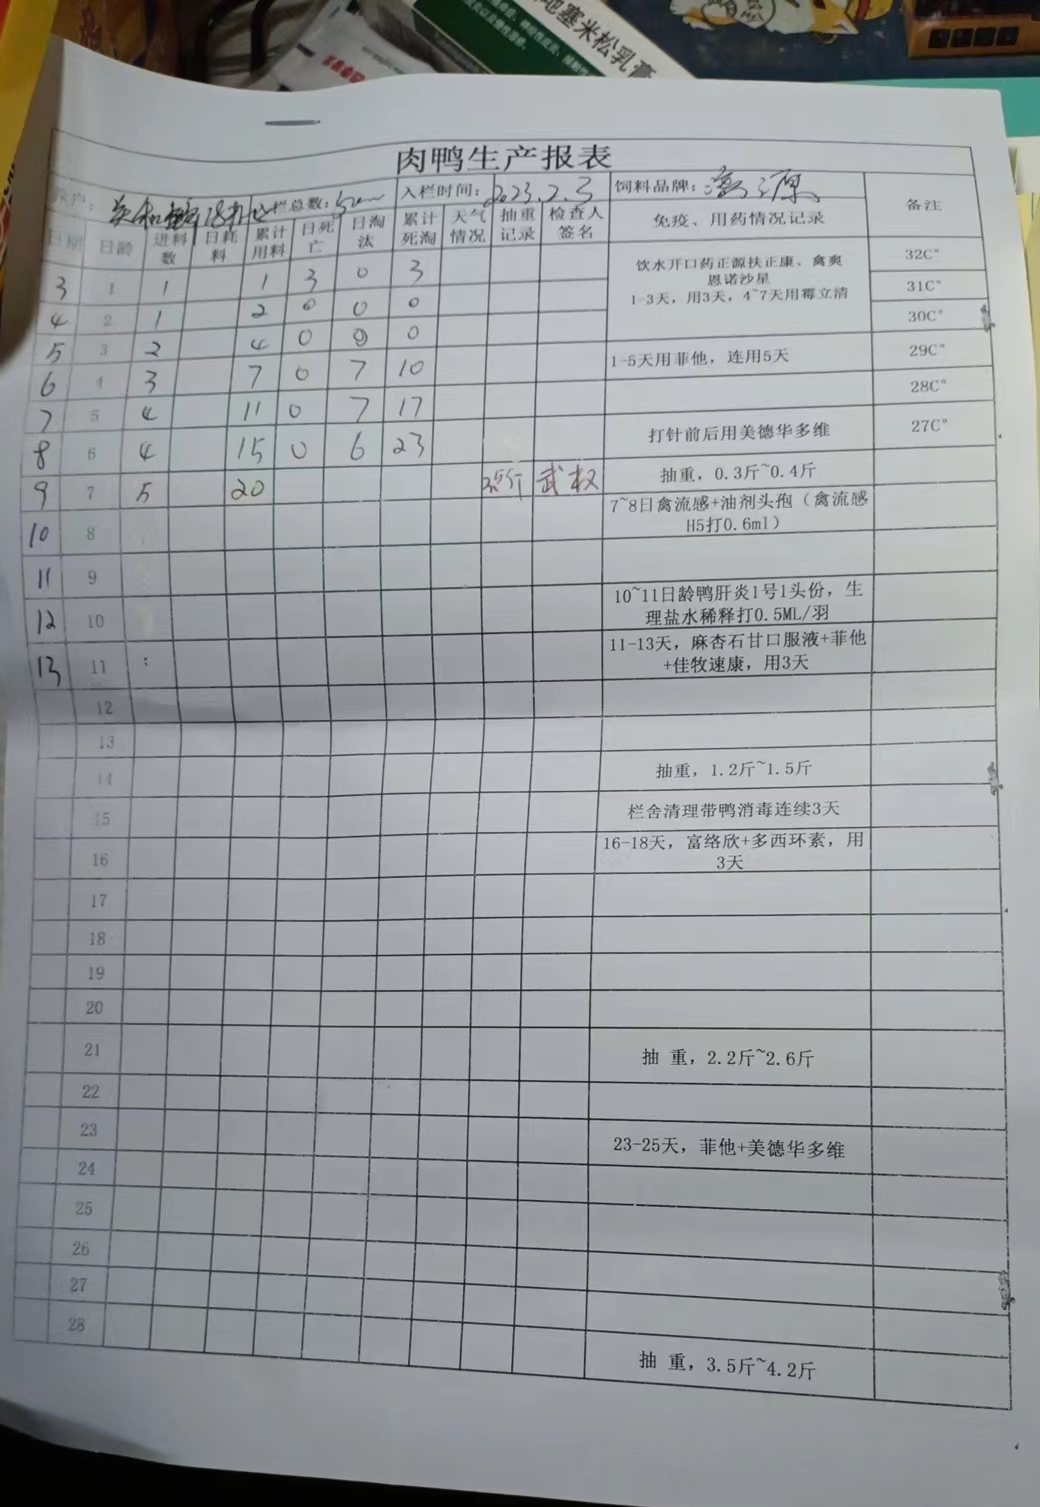 地塞米松乳膏
肉鸭生产报表
入栏总数：5000 入栏时间：2023.2.3 饲料品牌： 备注
日期 日龄 进料数 日耗料 累计用料 日死亡 日淘汰 累计死淘 天气情况 抽重记录 检查人签名 免疫、用药情况记录
3 1 1 1 3 0 3 饮水开口药正源扶正康、禽爽 32C°
恩诺沙星
4 2 1 2 0 0 0 1-3天，用3天，4~7天用霉立清 31C°
5 3 2 4 0 0 0 30C°
6 4 3 7 0 7 10 1-5天用菲他，连用5天 29C°
7 5 4 11 0 7 17 28C°
8 6 4 15 0 6 23 打针前后用美德华多维 27C°
9 7 5 20 武权 抽重，0.3斤~0.4斤
10 8 7~8日禽流感+油剂头孢（禽流感
H5打0.6ml）
11 9
12 10 10~11日龄鸭肝炎1号1头份，生
理盐水稀释打0.5ML/羽
13 11 11-13天，麻杏石甘口服液+菲他
+佳牧速康，用3天
12
13
14 抽重，1.2斤~1.5斤
15 栏舍清理带鸭消毒连续3天
16 16-18天，富络欣+多西环素，用
3天
17
18
19
20
21 抽 重，2.2斤~2.6斤
22
23 23-25天，菲他+美德华多维
24
25
26
27
28 抽 重，3.5斤~4.2斤